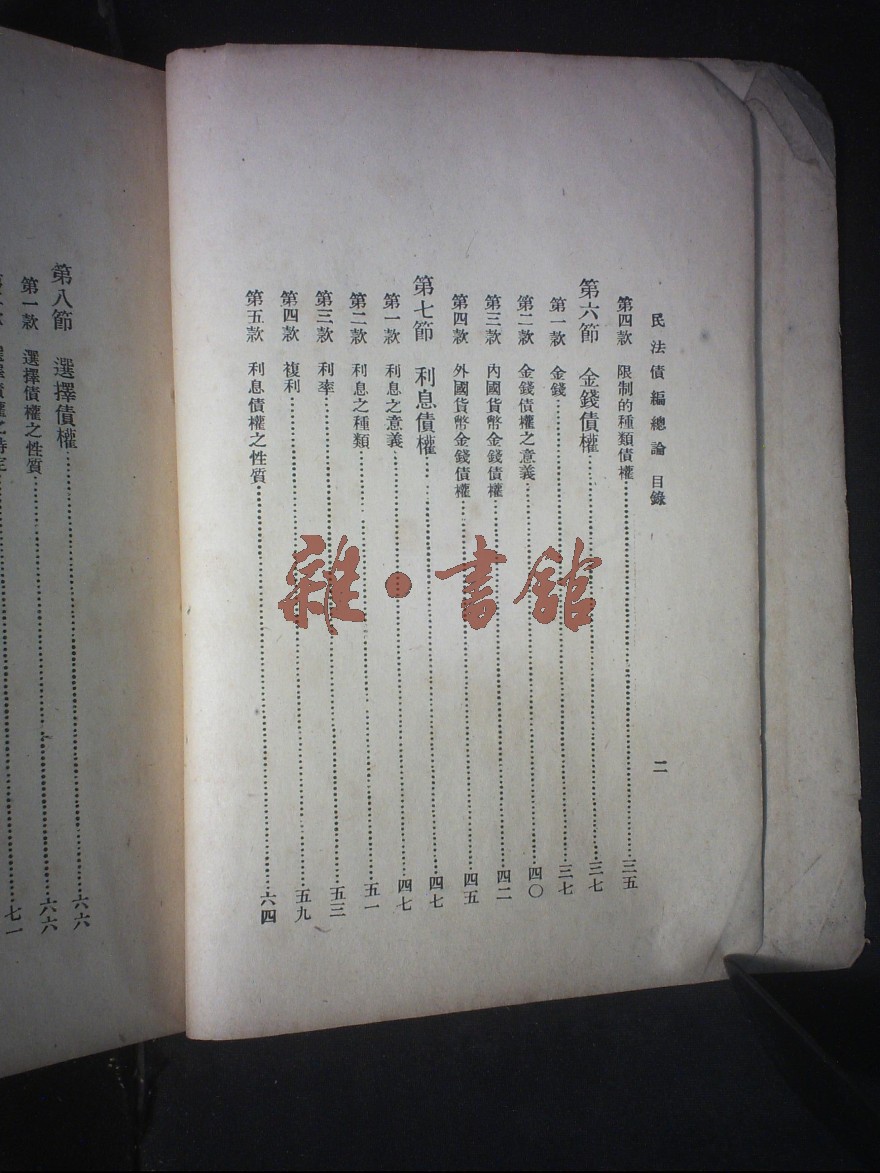 民法債編總論 目錄 二
第四款 限制的種類債權 三五
第六節 金錢債權 三七
第一款 金錢 三七
第二款 金錢債權之意義 四〇
第三款 內國貨幣金錢債權 四二
第四款 外國貨幣金錢債權 四五
第七節 利息債權 四七
第一款 利息之意義 四七
第二款 利息之種類 五一
第三款 利率 五三
第四款 複利 五九
第五款 利息債權之性質 六四
第八節 選擇債權 六六
第一款 選擇債權之性質 六六
選擇債權之特定 七一
雜·書館